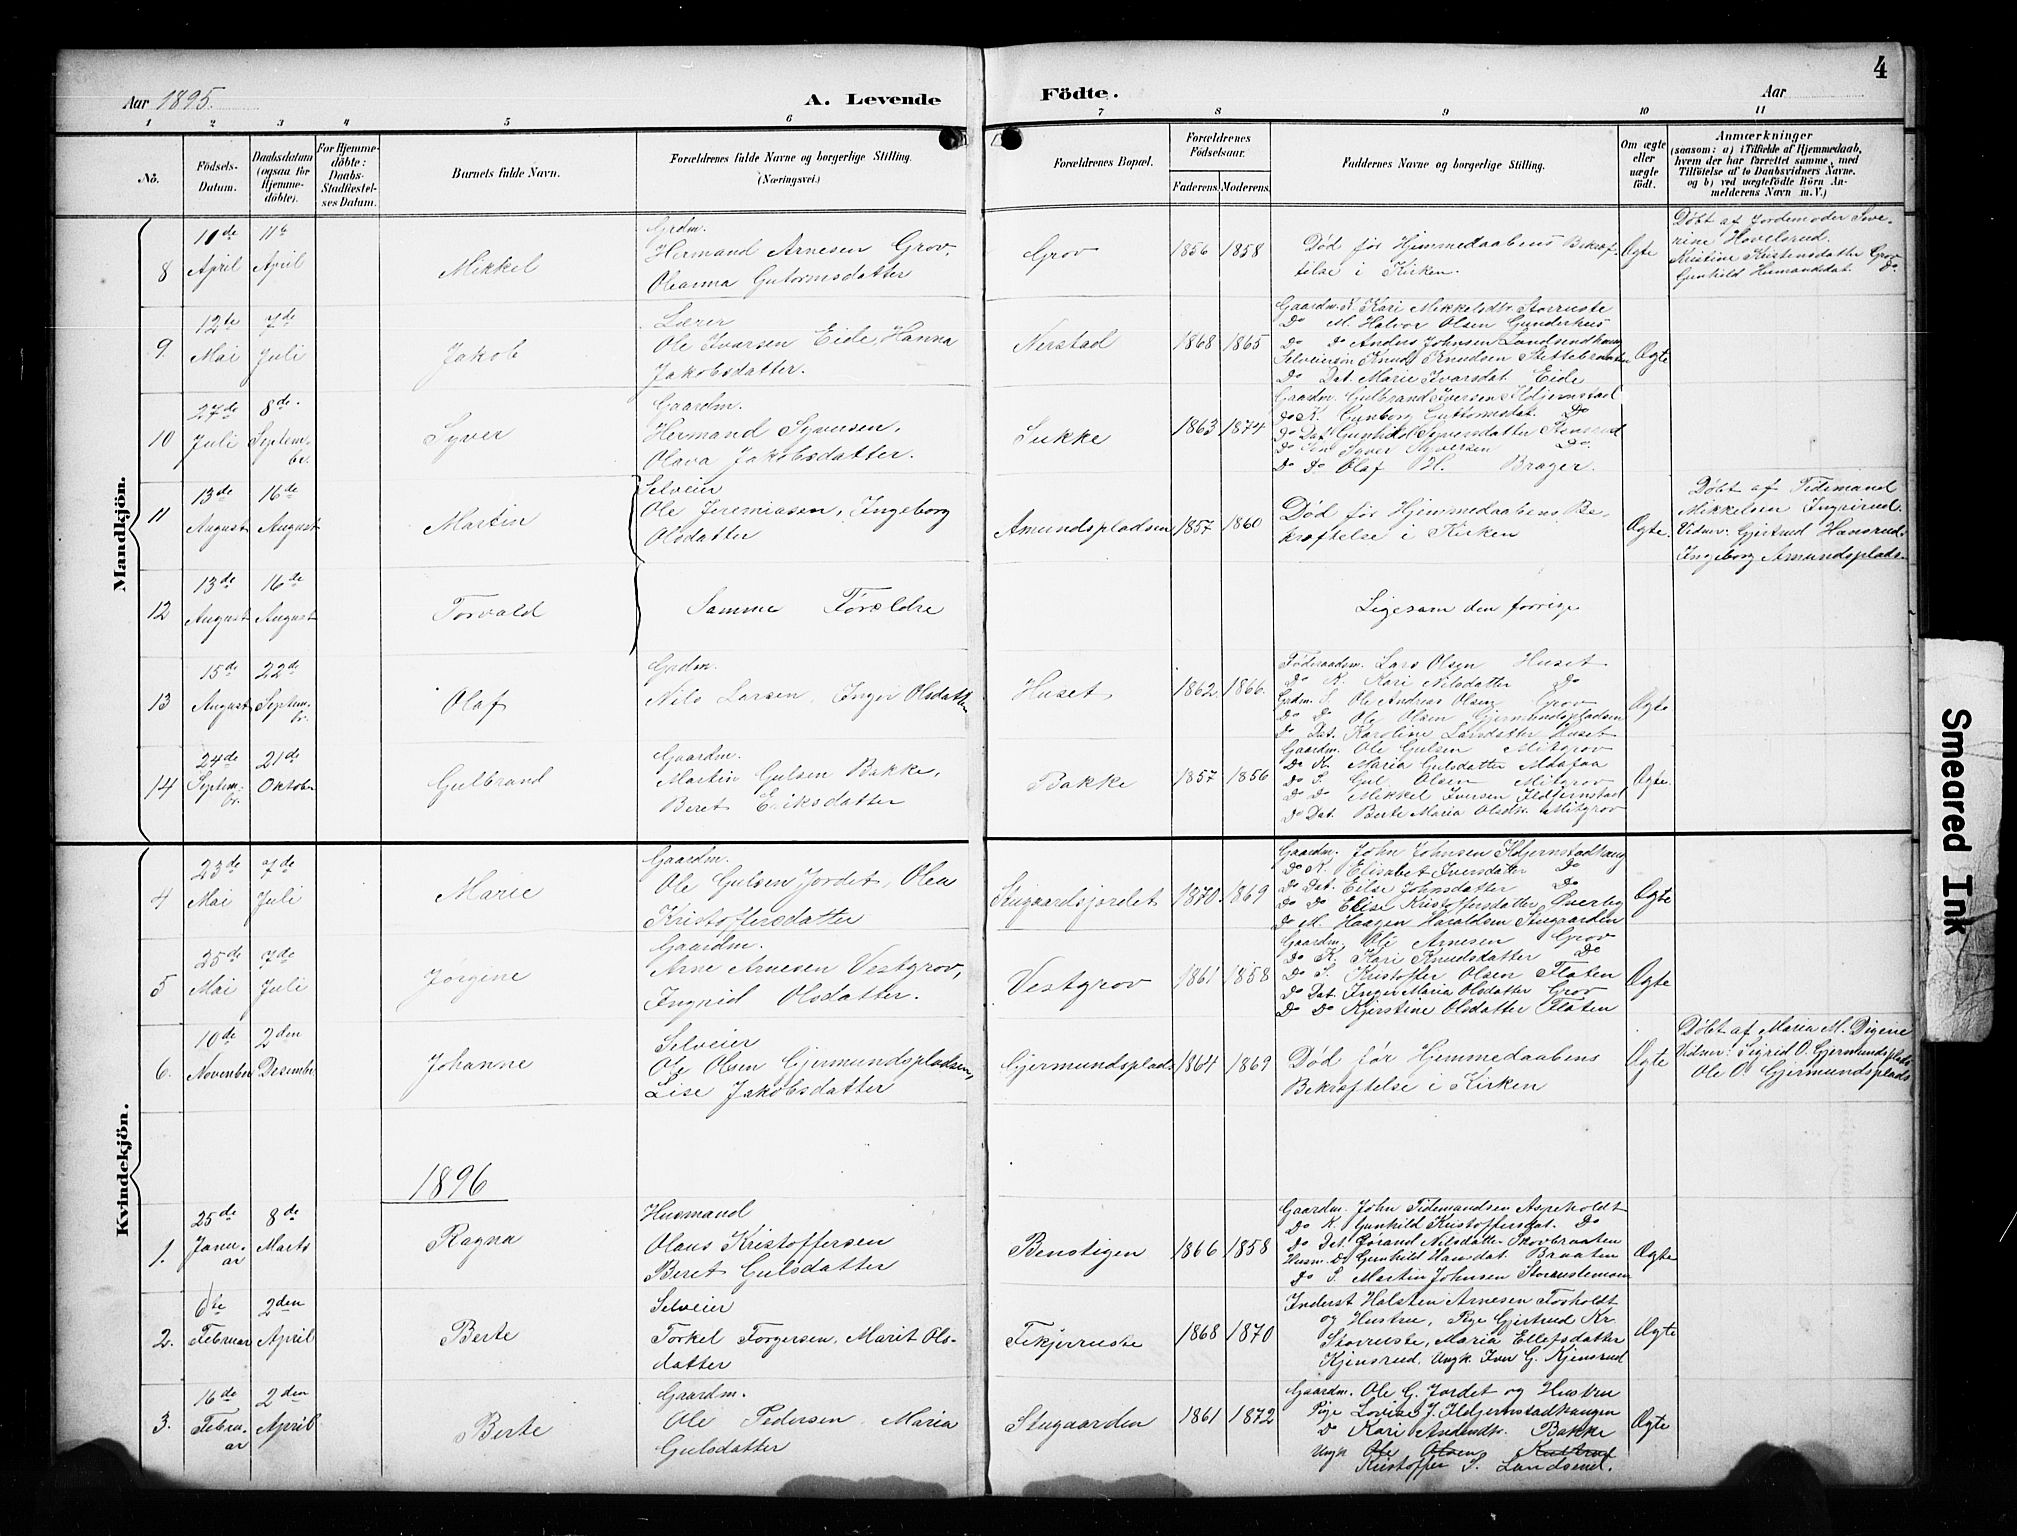 4
Aar 1895. A. Levende Födte. Aar
1 2 3 4 5 6 7 8 9 10 11
No. Födsels-Datum. Daabsdatum (ogsaa for Hjemmedöbte). For Hjemmedöbte: Daabs-Stadfæstelses Datum. Barnets fulde Navn. Forældrenes fulde Navne og borgerlige Stilling. (Næringsvei.) Forældrenes Bopæl. Forældrenes Födselsaar. Faderens. Moderens. Faddernes Navne og borgerlige Stilling. Om ægte eller uægte födt. Anmærkninger (saasom: a) i Tilfælde af Hjemmedaab, hvem der har forrettet samme, med Tilföielse af to Daabsvidners Navne, og b) ved uægtefödte Börn Anmelderens Navn m. V.)
Mandkjön.
8 11de April 11te April Mikkel
Grdm.
Hermand Arnesen Grov,
Oleanna Gutormsdatter
Grov 1856 1858
Død før Hjemmedaabens Bekræf-
telse i Kirken.
Ægte
Døbt af Jordemoder Seve-
rine Hovelsrud.
Kristine Kristensdatter Grov
Gunhild Hermandsdat. Do
9. 12te Mai 7de Juli Jakob
Lærer
Ole Ivarsen Eide, Hanna
Jakobsdatter.
Nerstad 1868 1865
Gaardm. K. Kari Mikkelsdtr. Storruste
Do M. Halvor Olsen Gunderhus
Do Do Anders Johnsen Landsendhaug
Selveiersøn Knud Knudsen Slettebraaten
Do Dat. Marie Ivarsdat. Eide
Ægte
10 27de Juli 8de Septembr. Syver
Gaardm.
Hermand Syversen,
Olava Jakobsdatter.
Sukke 1863 1874
Gaardm. Gulbrand Iversen Ildjernstad
Do K. Gunborg Guttormsdat. Do
Do Dat. Gunhild Syversdatter Stensrud
Do Søn Syver Syversen Do
Do Do Olaf H. Brager.
11 13de August 16de August Martin
Selveier
Ole Jeremiasen, Ingeborg
Olsdatter
Amundspladsen 1857 1860
Død før Hjemmedaabens Be-
kræftelse i Kirken
Ægte.
Døbt af Tidemand
Mikkelsen Ingvirud.
Vidner: Gjertrud Hansrud
Ingeborg Amundsplads.
12 13de August 16de August Torvald
Samme Forældre
Ligesom den forrige
13 15de August 22de Septembr. Olaf
Grdm.
Nils Larsen, Inger Olsdatter
Huset 1862 1866.
Føderaadsm. Lars Olsen Huset
Do K. Kari Nilsdatter Do
Grdm. S. Ole Andreas Olsen Grov
Do Do Ole Olsen Gjermundspladsen
Do Dat. Karoline Larsdatter Huset
Ægte
14 24de Septembr. 21de Oktober Gulbrand
Gaardm.
Martin Gulsen Bakke,
Beret Eriksdatter
Bakke 1857 1856
Gaardm. Ole Gulsen Mitgrov
Do K. Maria Gulsdatter
Do S. Gul Olsen Mitgrov
Do Do Mikkel Iversen Ildjernstad
Do Dat. Berte Maria Olsdtr. Mitgrov
Ægte.
Kvindekjön.
4 23de Mai 7de Juli Marie
Gaardm.
Ole Gulsen Jordet, Olea
Kristoffersdatter
Stugaardsjordet 1870. 1869
Gaardm. John Johnsen Ildjernstadhaug
Do K. Elisabet Iversdatter Do
Do Dat. Eilse Johnsdatter Do
Do Do Elise Kristoffersdatter Sverteg
Do M. Haagen Haraldsen Stugaarden
Ægte
5 25de Mai 7de Juli Jørgine
Gaardm.
Arne Arnesen Vestgrov,
Ingrid Olsdatter.
Vestgrov 1861 1858
Gaardm. Ole Arnesen Grov
Do K. Kari Knudsdatter Do
Do S. Kristoffer Olsen Flaten
Do Dat. Inger Maria Olsdatter Grov
Do Do Kjerstine Olsdatter Flaten
Ægte
6. 10de November 2den Desember Johanne
Selveier
Ole Olsen Gjermundspladsen,
Lise Jakobsdatter
Gjermundsplads. 1864 1869
Død før Hjemmedaabens
Bekræftelse i Kirken
Ægte
Døbt af Maria M. Digene
Vidner: Sigrid O. Gjermundsplads
Ole O. Gjermundsplads
1896
1. 25de Januar 8de Marts Ragna
Husmand
Olaus Kristoffersen
Beret Gulsdatter
Benstigen 1866 1858
Gaardm. John Tidemandsen Aspeholdt
Do K. Gunhild Kristoffersdat. Do
Do Dat. Gørand Nilsdatter Skovbraaten
Husm. Do Gunhild Hansdat. Braaten
Do S. Martin Johnsen Storrustemoen
Ægte
2. 6te Februar 2den April Berte
Selveier
Torkel Torgersen, Marit Ols-
datter
Fekjerruste 1868 1870
Inderst Halsten Arnesen Fosholdt
og Hustru, Pige Gjertrud Kr.
Storruste, Maria Ellefsdatter
Kjensrud, Ungk. Iver G. Kjensrud
Ægte
3. 16de Februar 2den April Berte
Gaardm.
Ole Pedersen, Maria
Gulsdatter
Stugaarden 1861 1872
Gaardm. Ole G. Jordet og Hustru
Pige Lovise J. Ildjernstadhaugen
Do Kari Andersdtr. Bakke
Ungk. Ole Olsen
Kristoffer S. Landsend.
Ægte
Smeared Ink